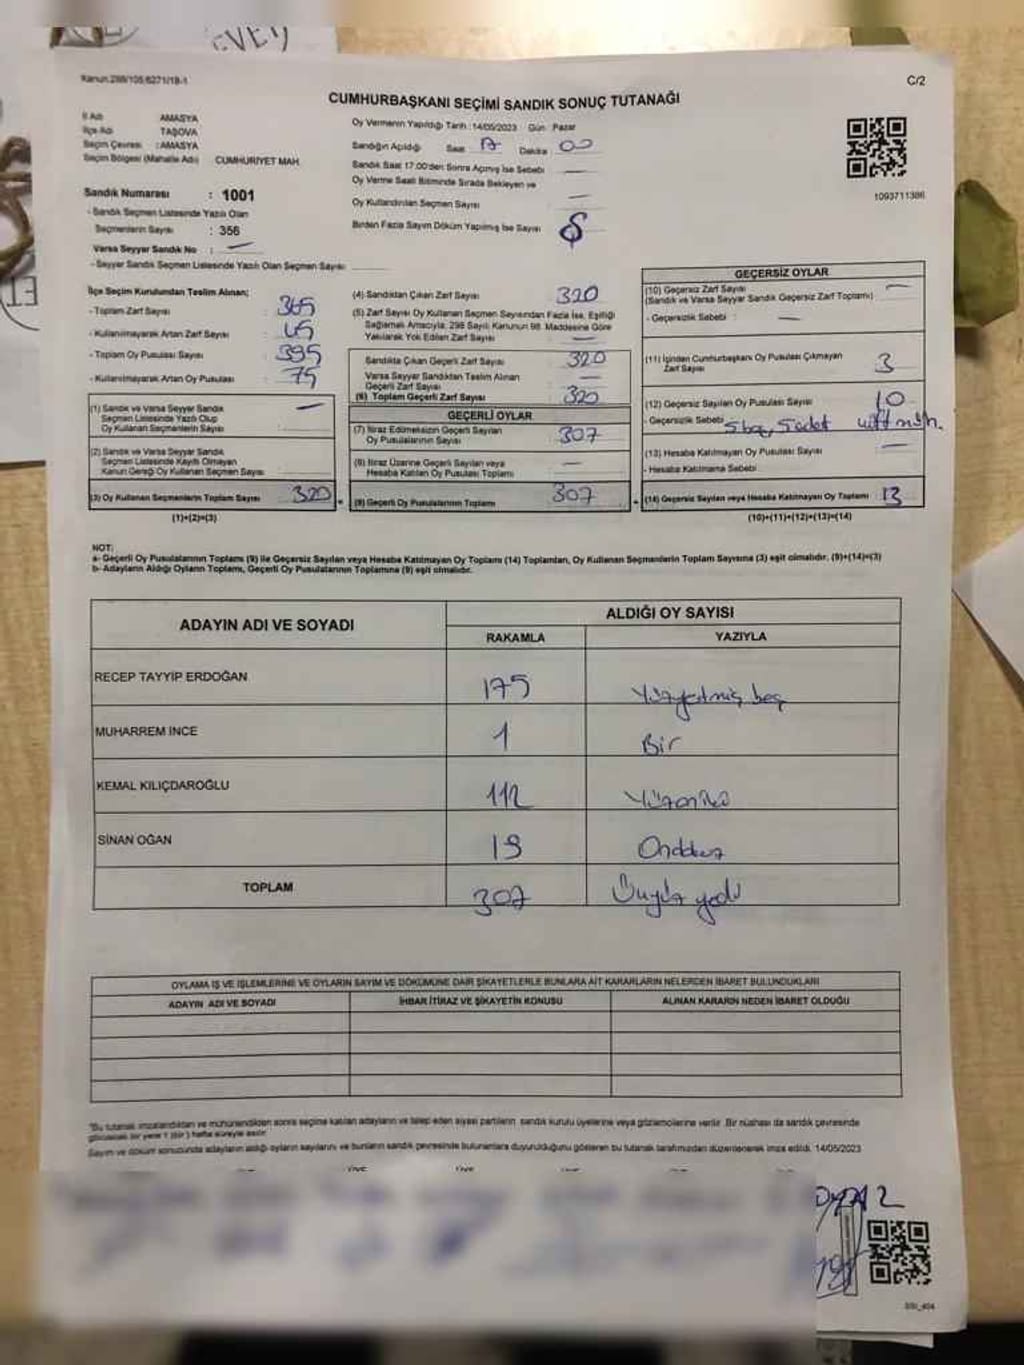 EVET
Kanun:298/105;6271/18-1
C/2
CUMHURBAŞKANI SEÇİMİ SANDIK SONUÇ TUTANAĞI
İl Adı AMASYA
İlçe Adı TAŞOVA
Seçim Çevresi : AMASYA
Seçim Bölgesi (Mahalle Adı) CUMHURİYET MAH.
Sandık Numarası : 1001
- Sandık Seçmen Listesinde Yazılı Olan
Seçmenlerin Sayısı : 356
Varsa Seyyar Sandık No : —
- Seyyar Sandık Seçmen Listesinde Yazılı Olan Seçmen Sayısı:
Oy Vermenin Yapıldığı Tarih : 14/05/2023 Gün : Pazar
Sandığın Açıldığı Saat 17 Dakika 00
Sandık Saat 17:00'den Sonra Açılmış İse Sebebi —
Oy Verme Saati Bitiminde Sırada Bekleyen ve
Oy Kullandırılan Seçmen Sayısı —
Birden Fazla Sayım Döküm Yapılmış İse Sayısı
1093711386
İlçe Seçim Kurulundan Teslim Alınan;
- Toplam Zarf Sayısı : 365
- Kullanılmayarak Artan Zarf Sayısı : 45
- Toplam Oy Pusulası Sayısı : 395
- Kullanılmayarak Artan Oy Pusulası : 75
(1) Sandık ve Varsa Seyyar Sandık
Seçmen Listesinde Yazılı Olup
Oy Kullanan Seçmenlerin Sayısı : —
(2) Sandık ve Varsa Seyyar Sandık
Seçmen Listesinde Kayıtlı Olmayan
Kanun Gereği Oy Kullanan Seçmen Sayısı :
(3) Oy Kullanan Seçmenlerin Toplam Sayısı 320
(1)+(2)=(3)
(4) Sandıktan Çıkan Zarf Sayısı 320
(5) Zarf Sayısı Oy Kullanan Seçmen Sayısından Fazla İse, Eşitliği
Sağlamak Amacıyla; 298 Sayılı Kanunun 98. Maddesine Göre
Yakılarak Yok Edilen Zarf Sayısı —
Sandıkta Çıkan Geçerli Zarf Sayısı 320
Varsa Seyyar Sandıktan Teslim Alınan
Geçerli Zarf Sayısı —
(6) Toplam Geçerli Zarf Sayısı 320
GEÇERLİ OYLAR
(7) İtiraz Edilmeksizin Geçerli Sayılan
Oy Pusulalarının Sayısı 307
(8) İtiraz Üzerine Geçerli Sayılan veya
Hesaba Katılan Oy Pusulası Toplamı —
(9) Geçerli Oy Pusulalarının Toplamı 307
GEÇERSİZ OYLAR
(10) Geçersiz Zarf Sayısı —
(Sandık ve Varsa Seyyar Sandık Geçersiz Zarf Toplamı)
- Geçersizlik Sebebi : —
(11) İçinden Cumhurbaşkanı Oy Pusulası Çıkmayan
Zarf Sayısı 3
(12) Geçersiz Sayılan Oy Pusulası Sayısı 10
- Geçersizlik Sebebi
(13) Hesaba Katılmayan Oy Pusulası Sayısı —
- Hesaba Katılmama Sebebi
(14) Geçersiz Sayılan veya Hesaba Katılmayan Oy Toplamı 13
(10)+(11)+(12)+(13)=(14)
NOT:
a- Geçerli Oy Pusulalarının Toplamı (9) ile Geçersiz Sayılan veya Hesaba Katılmayan Oy Toplamı (14) Toplamları, Oy Kullanan Seçmenlerin Toplam Sayısına (3) eşit olmalıdır. (9)+(14)=(3)
b- Adayların Aldığı Oyların Toplamı, Geçerli Oy Pusulalarının Toplamına (9) eşit olmalıdır.
ADAYIN ADI VE SOYADI ALDIĞI OY SAYISI
RAKAMLA YAZIYLA
RECEP TAYYİP ERDOĞAN 175 Yüzyetmiş beş
MUHARREM İNCE 1 Bir
KEMAL KILIÇDAROĞLU 112 Yüzoniki
SİNAN OĞAN 19 Ondokuz
TOPLAM 307 Üçyüz yedi
OYLAMA İŞ VE İŞLEMLERİNE VE OYLARIN SAYIM VE DÖKÜMÜNE DAİR ŞİKAYETLERLE BUNLARA AİT KARARLARIN NELERDEN İBARET BULUNDUKLARI
ADAYIN ADI VE SOYADI İHBAR İTİRAZ VE ŞİKAYETİN KONUSU ALINAN KARARIN NEDEN İBARET OLDUĞU
"Bu tutanak imzalandıktan ve mühürlendikten sonra seçime katılan adayların ve talep eden siyasi partilerin sandık kurulu üyelerine veya gözlemcilerine verilir. Bir nüshası da sandık çevresinde
görülecek bir yere 1 (bir) hafta süreyle asılır.
Sayım ve döküm sonucunda adayların aldığı oyların sayılarını ve bunların sandık çevresinde bulunanlara duyurulduğunu gösteren bu tutanak tarafımızdan düzenlenerek imza edildi. 14/05/2023
SSI_404